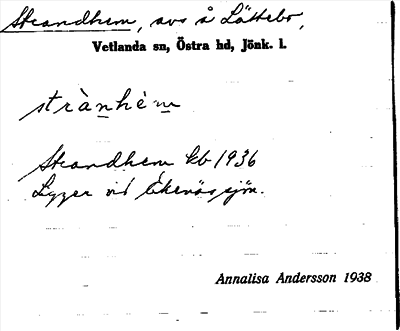 Strandhem, avs å Lättebo,
Vetlanda sn, Östra hd, Jönk. l.
strànhèm
Strandhem kb 1936
Ligger vid Ekenässjön.
Annalisa Andersson 1938